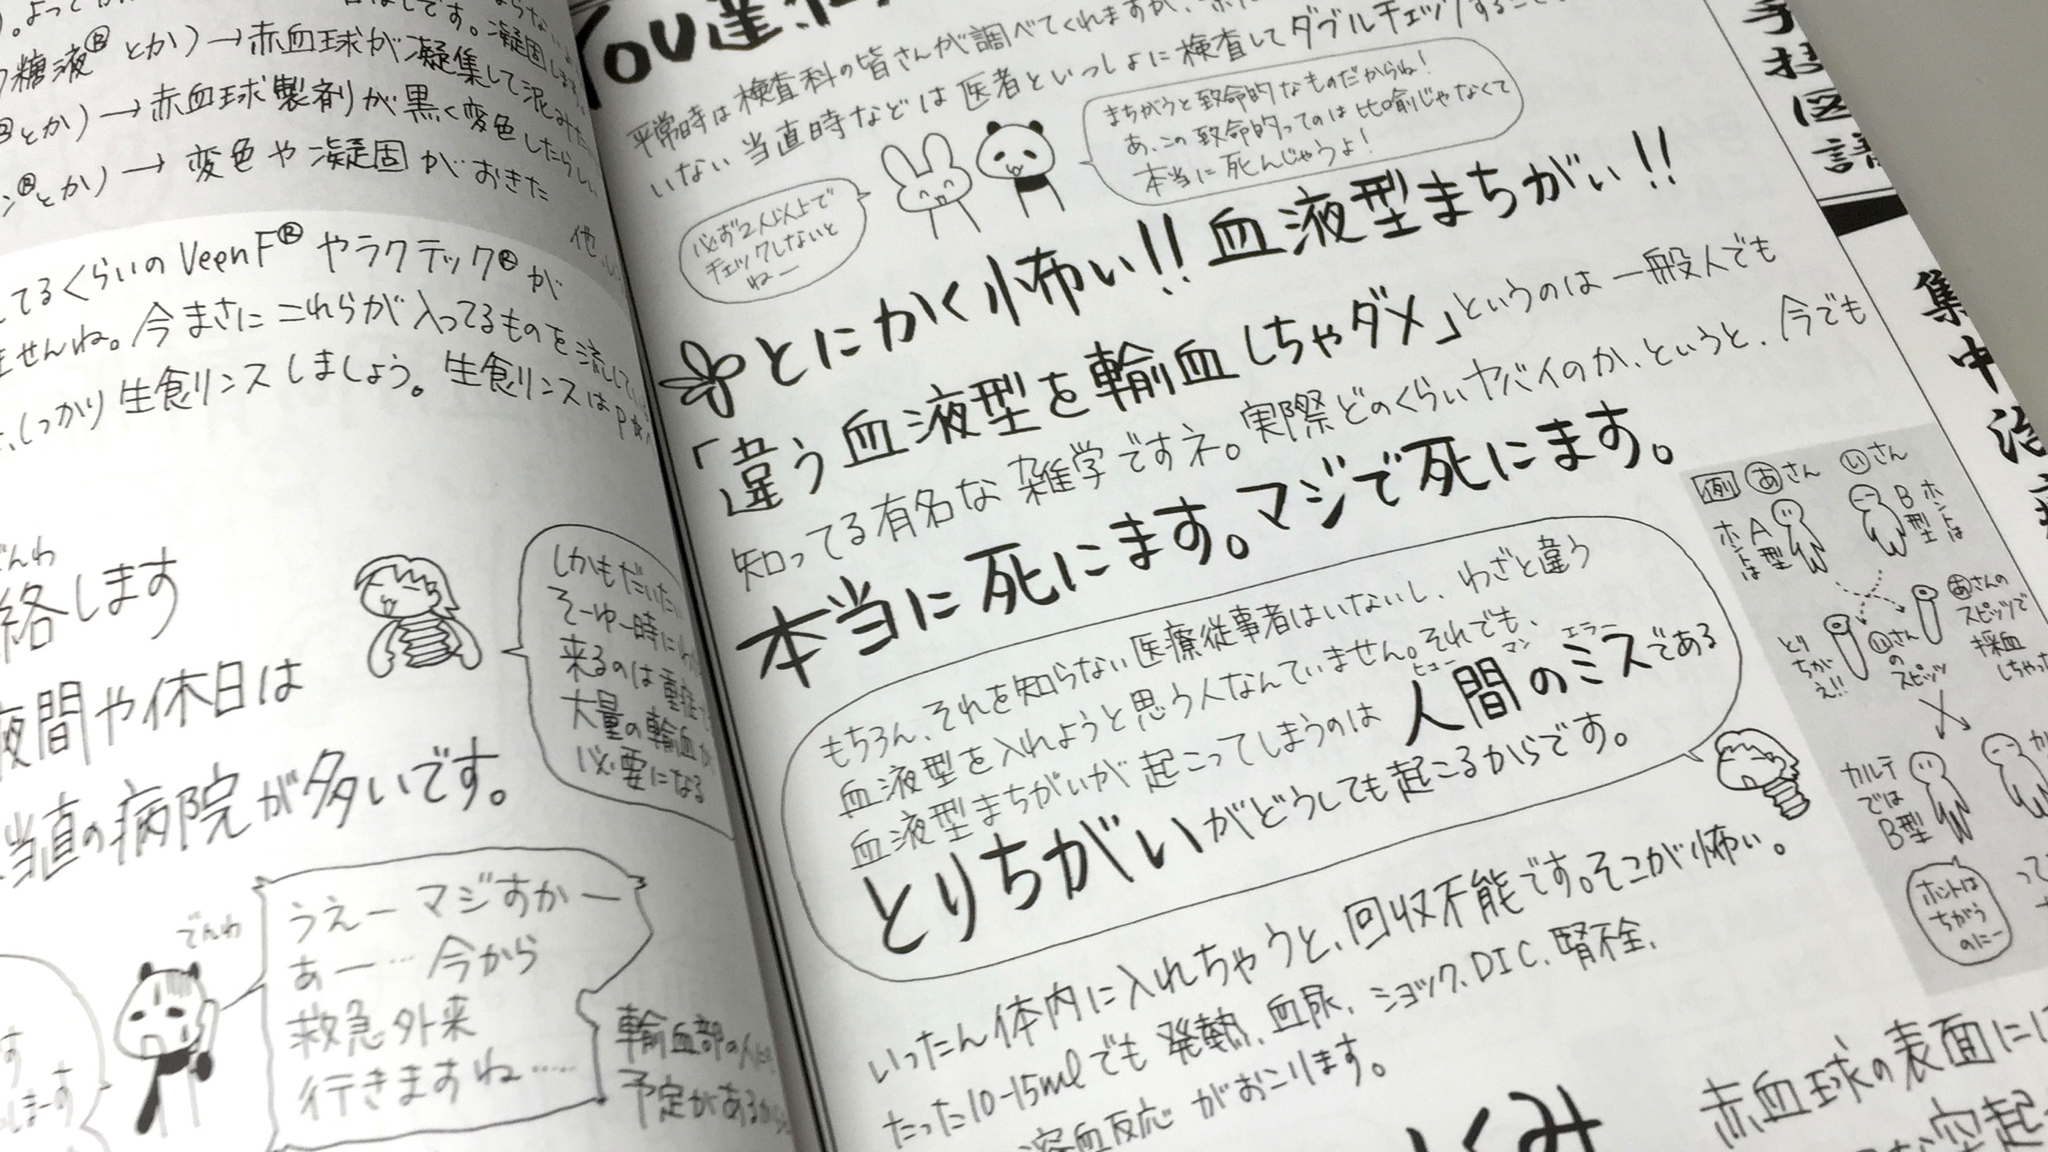 糖液Ⓡとか)→赤血球が凝集して泥みた
Ⓡとか)→赤血球製剤が黒く変色したらしい
ンⓇとか)→変色や凝固がおきた
他、
てるくらいのVeenFⓇやラクテックⓇが
ませんね。今まさにこれらが入ってるものを流して
しっかり生食リンスしましょう。生食リンスは
でんわ
絡します
夜間や休日は
当直の病院が多いです。
しかもだいたい
そーゆー時に
来るのは重症
大量の輸血が
必要になる
でんわ
うえー マジすかー
あー…今から
救急外来
行きますね……
輸血部の人
予定があるから
You達
平常時は検査科の皆さんが調べてくれますが、
いない当直時などは医者といっしょに検査してダブルチェックすること
必ず2人以上で
チェックしないと
ねー
まちがうと致命的なものだからね!
あ、この致命的ってのは比喩じゃなくて
本当に死んじゃうよ!
とにかく怖い!!血液型まちがい!!
「違う血液型を輸血しちゃダメ」というのは一般人でも
知ってる有名な雑学ですネ。実際どのくらいヤバイのか、というと、今でも
本当に死にます。マジで死にます。
もちろん、それを知らない医療従事者はいないし、わざと違う
血液型を入れようと思う人なんていません。それでも、
血液型まちがいが起こってしまうのは人間のミスである
ヒューマンエラー
とりちがいがどうしても起こるからです。
いったん体内に入れちゃうと、回収不能です。そこが怖い。
たった10-15mlでも発熱、血尿、ショック、DIC、腎不全、
溶血反応がおこります。
くみ
赤血球の表面に
手技図譜
集中治
例
あさん
いさん
ホントはA型
ホントはB型
とりちがえ!!
いさんのスピッツ
あさんの
スピッツで
採血
しちゃった
カルテ
では
B型
ホントは
ちがう
のにー